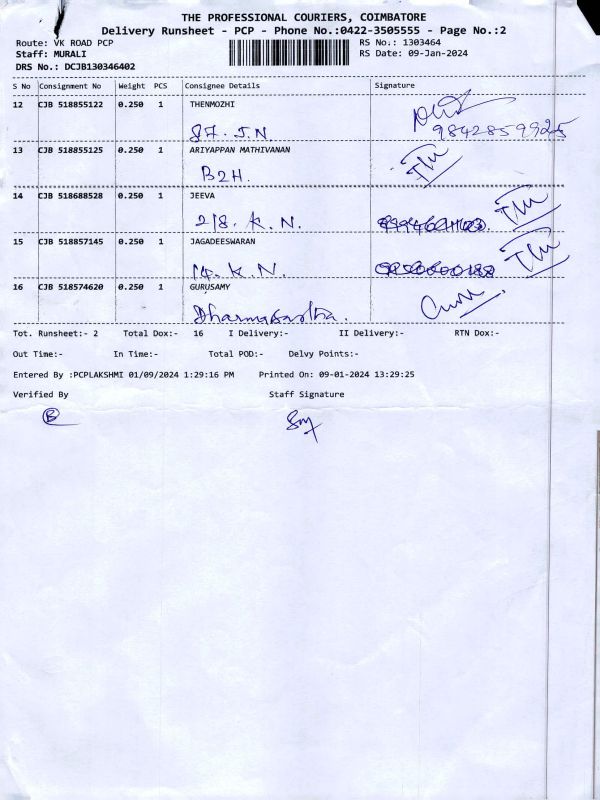 THE PROFESSIONAL COURIERS, COIMBATORE
Delivery Runsheet - PCP - Phone No.:0422-3505555 - Page No.:2
Route: VK ROAD PCP RS No.: 1303464
Staff: MURALI RS Date: 09-Jan-2024
DRS No.: DCJB130346402
S No Consignment No Weight PCS Consignee Details Signature
12 CJB 518855122 0.250 1 THENMOZHI
87. J.N. 9842859925
13 CJB 518855125 0.250 1 ARIYAPPAN MATHIVANAN
B2H.
14 CJB 518688528 0.250 1 JEEVA
2/8. K. N.
15 CJB 518857145 0.250 1 JAGADEESWARAN
14. K. N.
16 CJB 518574620 0.250 1 GURUSAMY
Dharmasastha.
Tot. Runsheet:- 2 Total Dox:- 16 I Delivery:- II Delivery:- RTN Dox:-
Out Time:- In Time:- Total POD:- Delvy Points:-
Entered By :PCPLAKSHMI 01/09/2024 1:29:16 PM Printed On: 09-01-2024 13:29:25
Verified By Staff Signature
B